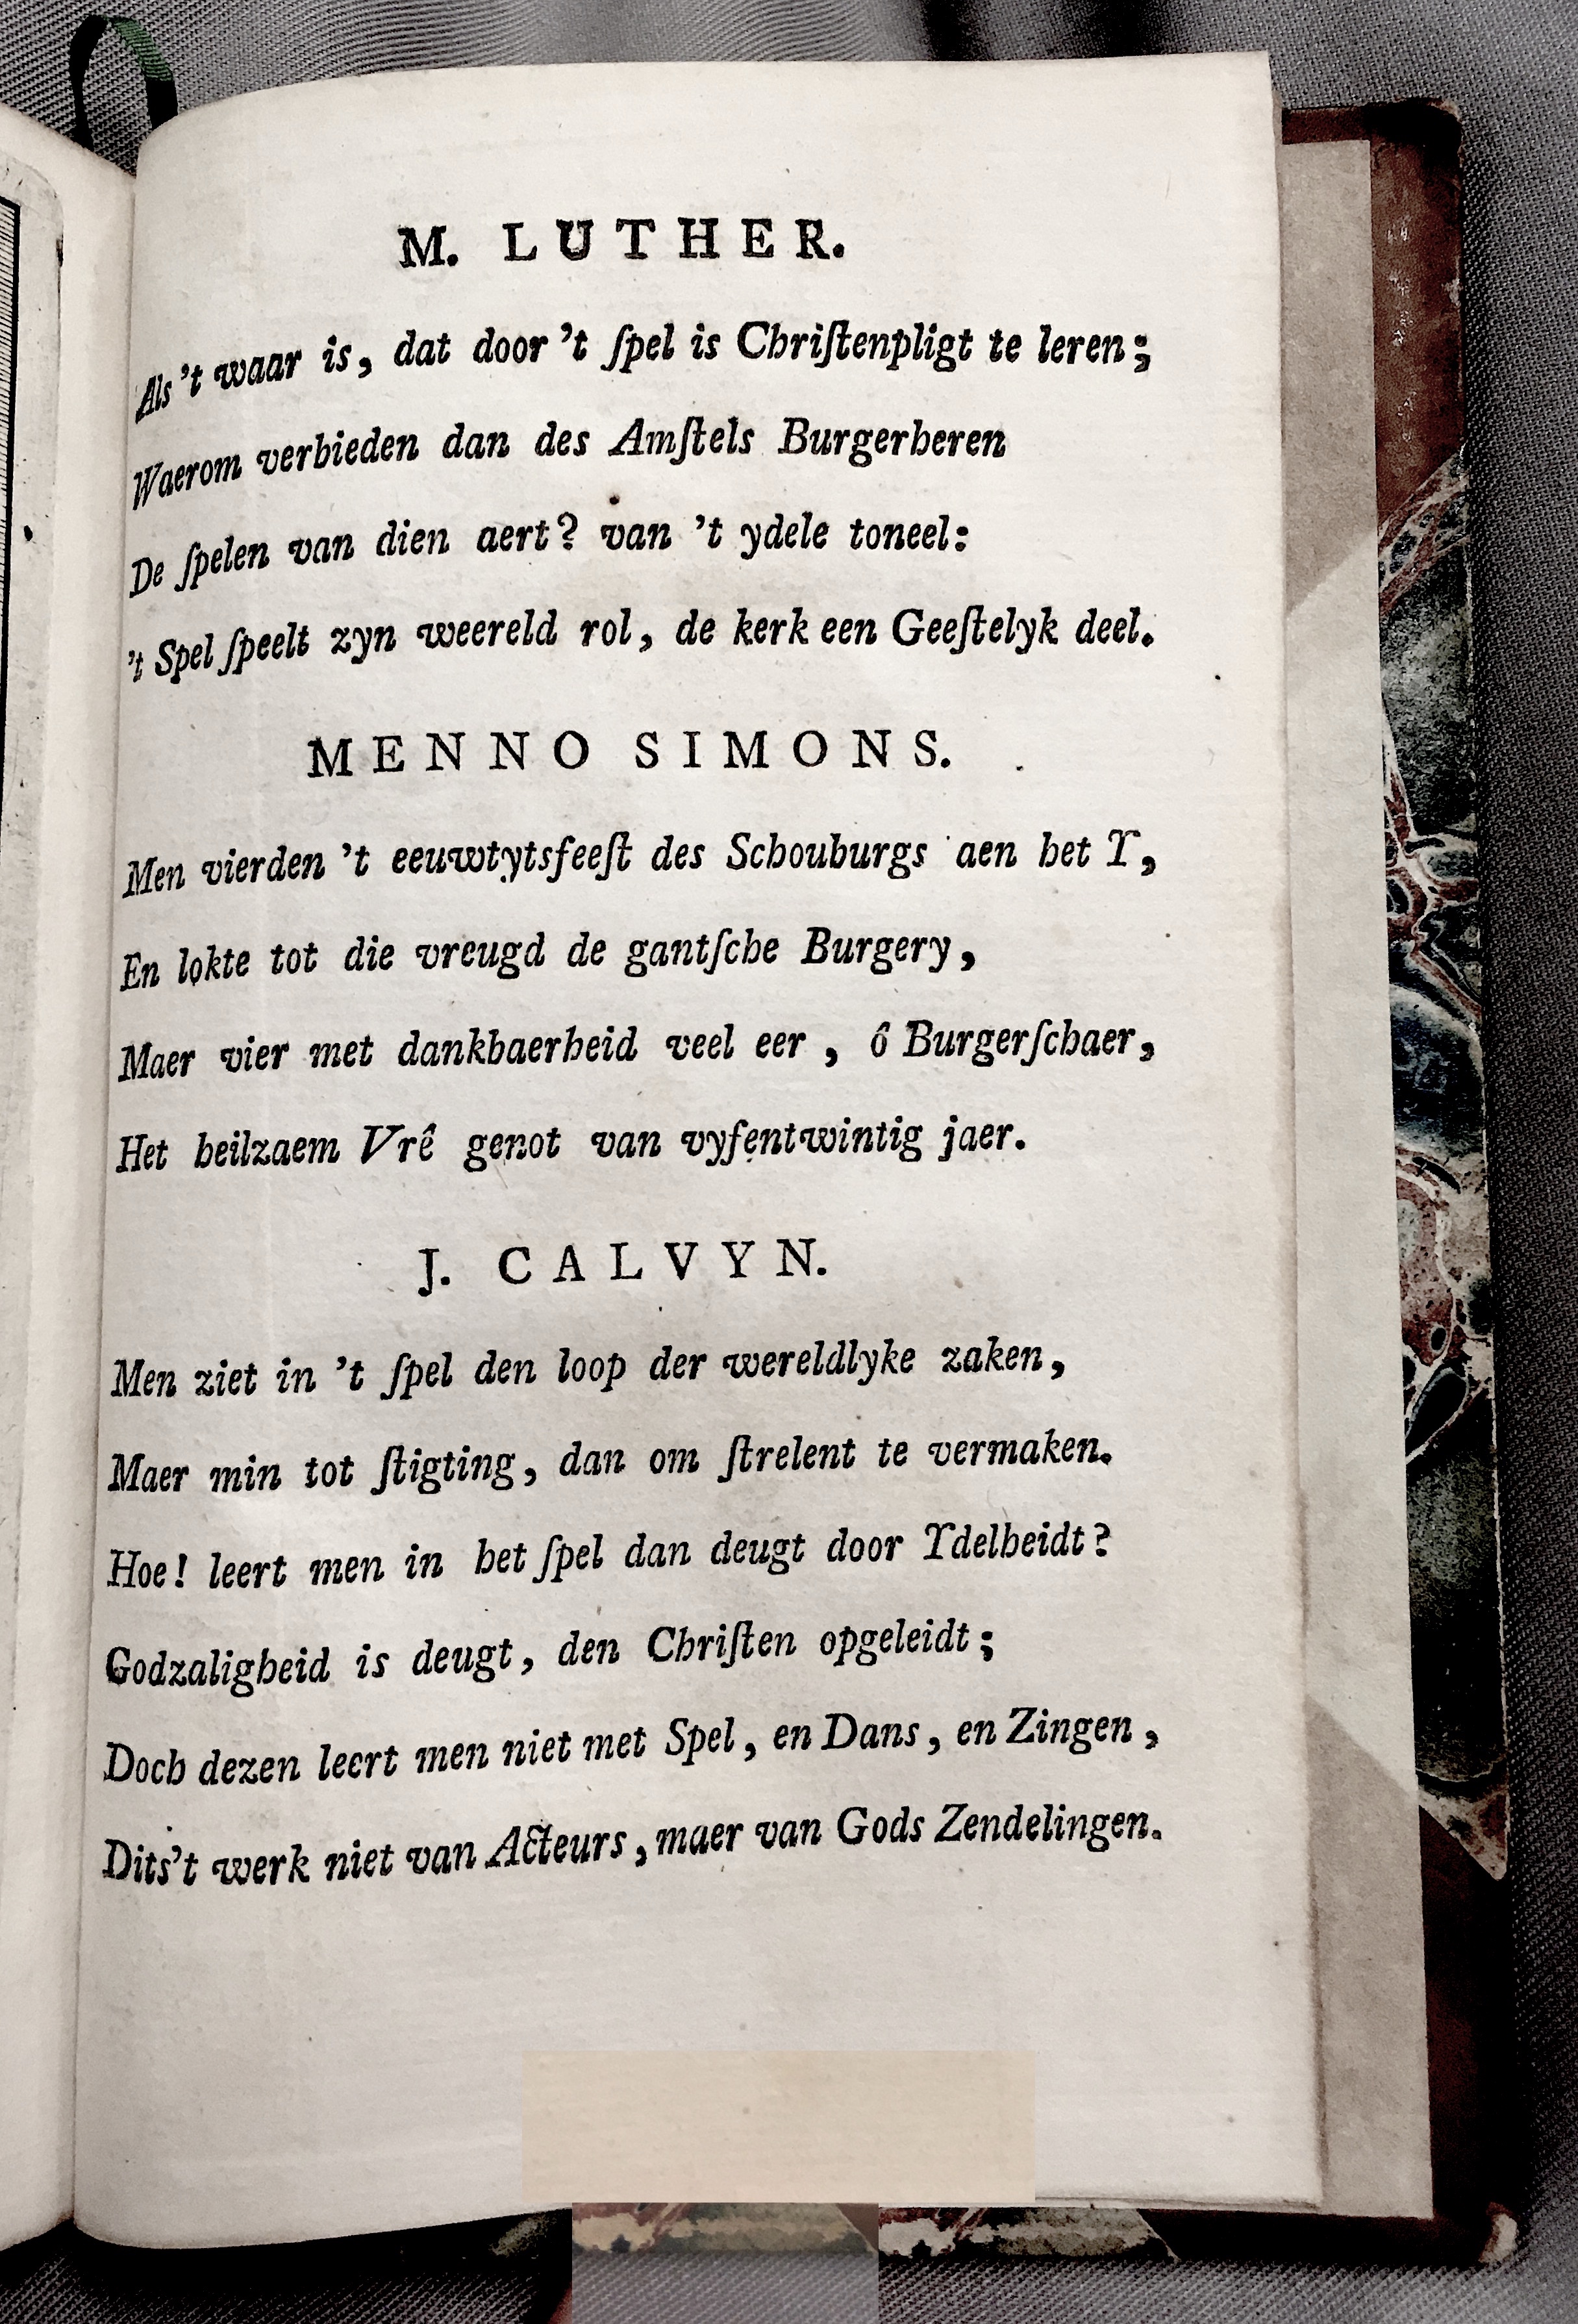 M. LUTHER.
Als 't waar is, dat door 't ſpel is Chriſtenpligt te leren;
Waerom verbieden dan des Amſtels Burgerheren
De ſpelen van dien aert? van 't ydele toneel:
't Spel ſpeelt zyn weereld rol, de kerk een Geeſtelyk deel.
MENNO SIMONS.
Men vierden 't eeuwtytsfeeſt des Schouburgs aen het Y,
En lokte tot die vreugd de gantſche Burgery,
Maer vier met dankbaerheid veel eer, ô Burgerſchaer,
Het heilzaem Vrê genot van vyfentwintig jaer.
J. CALVYN.
Men ziet in 't ſpel den loop der wereldlyke zaken,
Maer min tot ſtigting, dan om ſtrelent te vermaken.
Hoe! leert men in het ſpel dan deugt door Ydelheidt?
Godzaligheid is deugt, den Chriſten opgeleidt;
Doch dezen leert men niet met Spel, en Dans, en Zingen,
Dits't werk niet van Acteurs, maer van Gods Zendelingen.